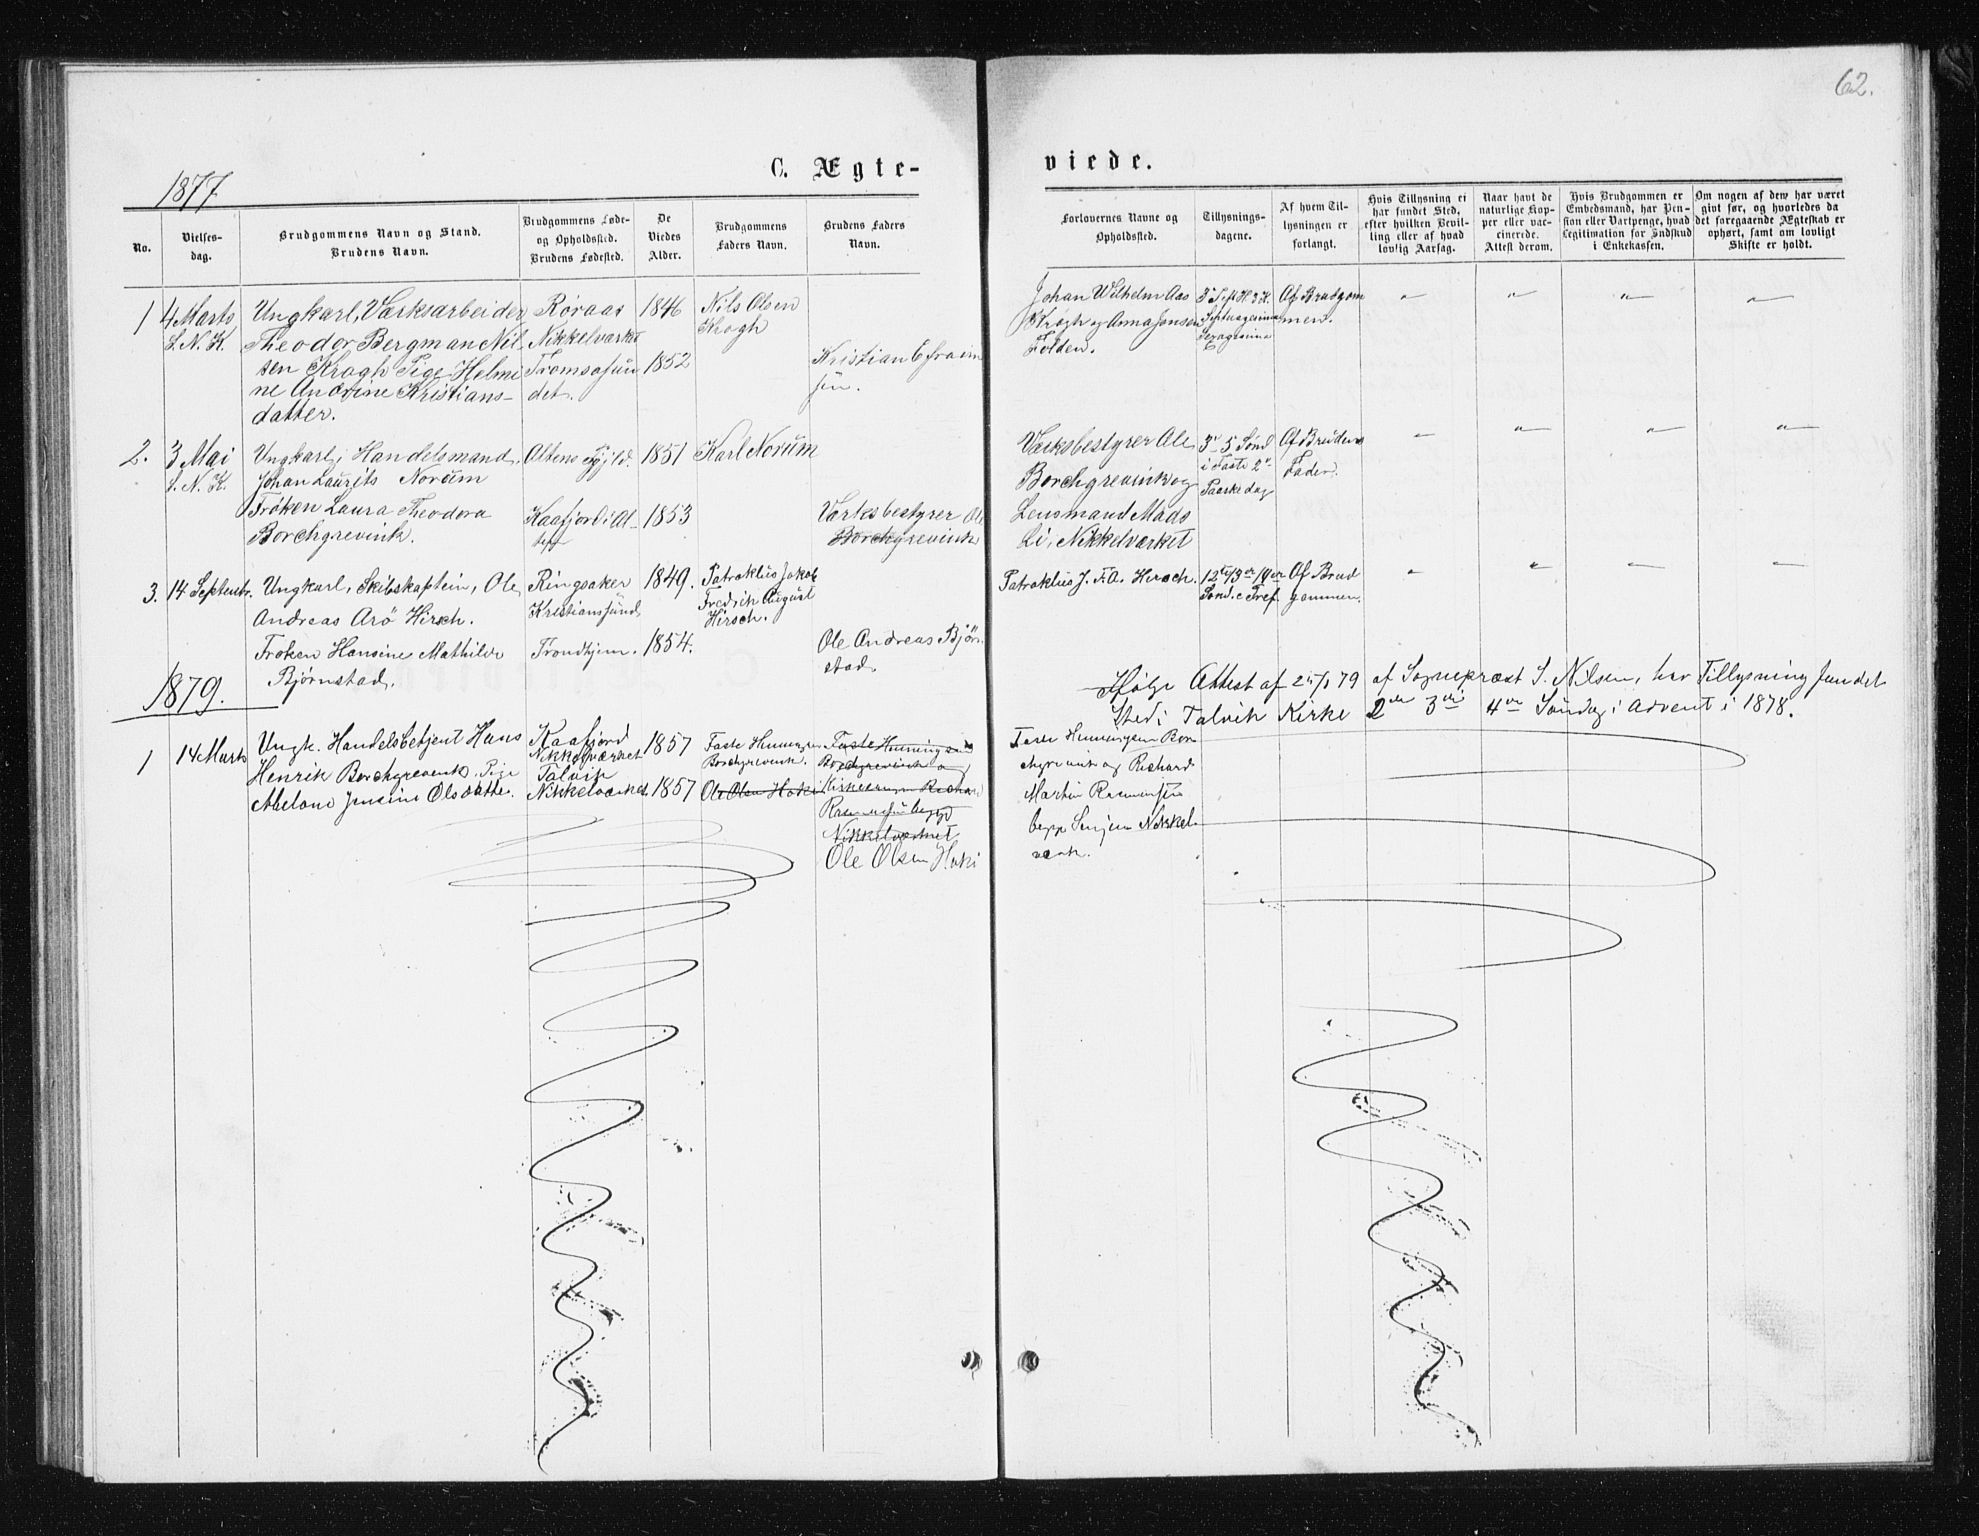 62.
1877
C. Ægte-
viede.
No.
Vielses-
dag.
Brudgommens Navn og Stand.
Brudens Navn.
Brudgommens Føde-
og Opholdssted.
Brudens Fødested.
De
Viedes
Alder.
Brudgommens
Faders Navn.
Brudens Faders
Navn.
Forlovernes Navne og
Opholdssted.
Tillysnings-
dagene.
Af hvem Til-
lysningen er
forlangt.
Hvis Tillysning ei
har fundet Sted,
efter hvilken Bevil-
ling eller af hvad
lovlig Aarsag.
Naar havt de
naturlige Kop-
per eller vac-
cinerede.
Attest derom.
Hvis Brudgommen er
Embedsmand, har Pen-
sion eller Vartpenge, hvad
Legitimation for Indskud
i Enkekassen.
Om nogen af dem har været
gift før, og hvorledes da
det foregaaende Ægteskab er
ophørt, samt om lovligt
Skifte er holdt.
1
4 Marts
S. N. K.
Ungkarl, Værksarbeider
Theodor Bergman Nil
sen Krogh Pige Helmi
ne Andrine Kristians-
datter.
Røraas
Nikkelværket
Tromsøsun
det.
1846
1852
Nils Olsen
Krogh
Kristian Efraim
sen.
Johan Wilhelm Aas
Krogh og Anna Jonsen
Folden.
Septuagesima
Sexagesima
Af Brudgom
men.
2.
3 Mai
S. N. K.
Ungkarl, Handelsmand
Johan Laurits Norum
Frøken Laura Theodora
Borchgrevink.
Altens
Kaafjord i Al-
ten
1851
1853
Karl Norum
Værksbestyrer Ole
Borchgrevink
Værksbestyrer Ole
Borchgrevink og
Lensmand Mads
Li, Nikkelværket
3die 5 Sønd
i Faste 2den
Paaskedag
Af Brudens
Fader.
3.
14 Septembr.
Ungkarl, Skibskaptein, Ole
Andreas Arø Hirsch.
Frøken Hansine Mathilde
Bjørnstad.
Ringsaker
Kristianssund
Trondhjem.
1849.
1854.
Patroklus Jakob
Fredrik August
Hirsch.
Ole Andreas Bjørn
stad.
Patroklus J. F. A. Hirsch.
12te 13de 14de
Sønd. e Tref.
Af Brud
gommen.
1879.
Ifølge Attest af 25/1 79 af Sognepræst S. Nilsen, har Tillysning fundet
Sted i Talvik Kirke 2den 3die 4de Søndag i Advent i 1878.
1
14 Marts
Ungk. Handelsbetjent Hans
Henrik Borchgrevink, Pige
Abelone Jensine Olsdatter.
Kaafjord
Nikkelværket
Talvik
Nikkelværket
1857
1857
Faste Henningsen
Borchgrevink.
Ole Olsen Hoki
Faste Henningsen
Borchgrevink og
Nikkelværket
Ole Olsen Hoki
Faste Henningsen Bor
chgrevink og Richard
Martin Rasmussen
begge Senjens Nikkel
værk.